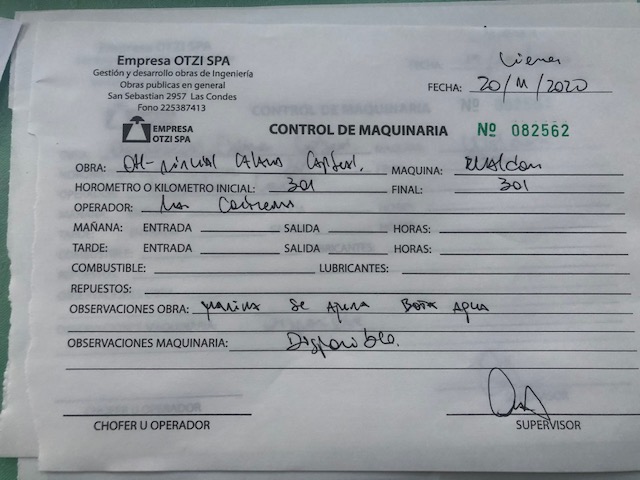 Empresa OTZI SPA
Gestión y desarrollo obras de Ingeniería
Obras públicas en general
San Sebastián 2957 Las Condes
Fono 225387413
FECHA: Viernes 20/11/2020
EMPRESA
OTZI SPA
CONTROL DE MAQUINARIA
Nº 082562
OBRA: MAQUINA:
HOROMETRO O KILOMETRO INICIAL: 301 FINAL: 301
OPERADOR:
MAÑANA: ENTRADA SALIDA HORAS:
TARDE: ENTRADA SALIDA HORAS:
COMBUSTIBLE: LUBRICANTES:
REPUESTOS:
OBSERVACIONES OBRA: se agua
OBSERVACIONES MAQUINARIA: Disponible.
CHOFER U OPERADOR
SUPERVISOR